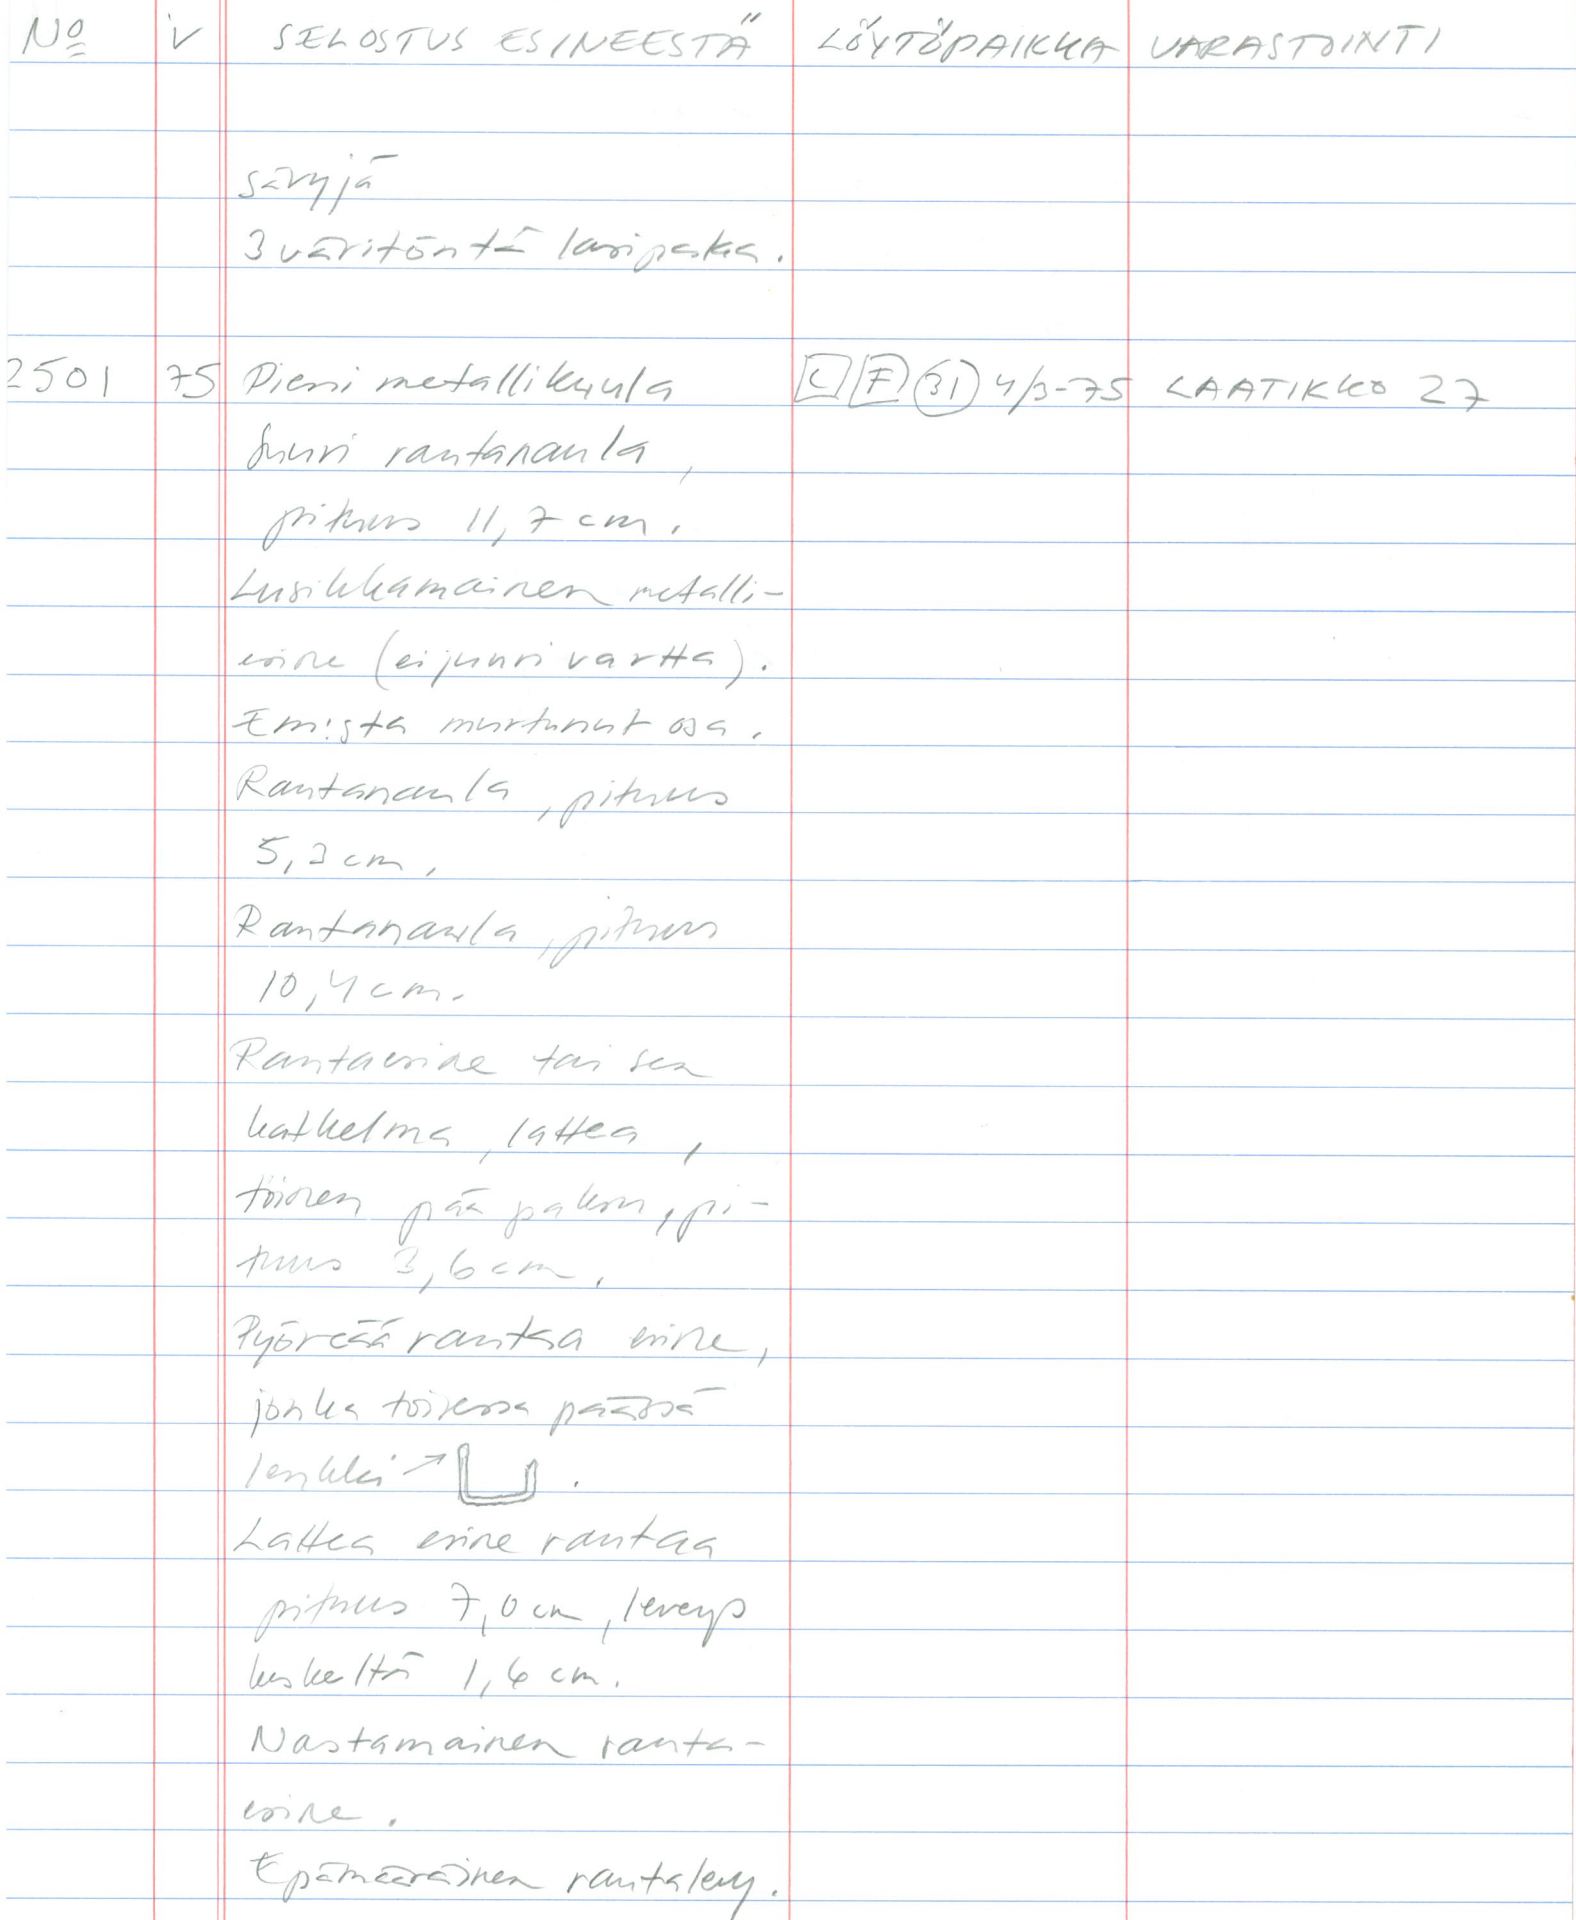 No V SELOSTUS ESINEESTÄ LÖYTÖPAIKKA VARASTOINTI
sävyjä
3 väritöntä lasipalaa.
2501 75 Pieni metallikuula C F 31 4/3-75 LAATIKKO 27
Suuri rautanaula,
pituus 11,7 cm.
Lusikkamainen metalli-
esine (ei juuri vartta).
Emistä murtunut osa.
Rautanaula, pituus
5,3 cm.
Rautanaula, pituus
10,4 cm.
Rautaesine tai sen
katkelma, lattea,
toinen pää paksu, pi-
tuus 3,6 cm.
Pyöreää rautaa esine,
jonka toisessa päässä
lenkki → .
Lattea esine rautaa
pituus 7,0 cm, leveys
keskeltä 1,6 cm.
Nastamainen rauta-
esine.
Epämääräinen rautalevy.